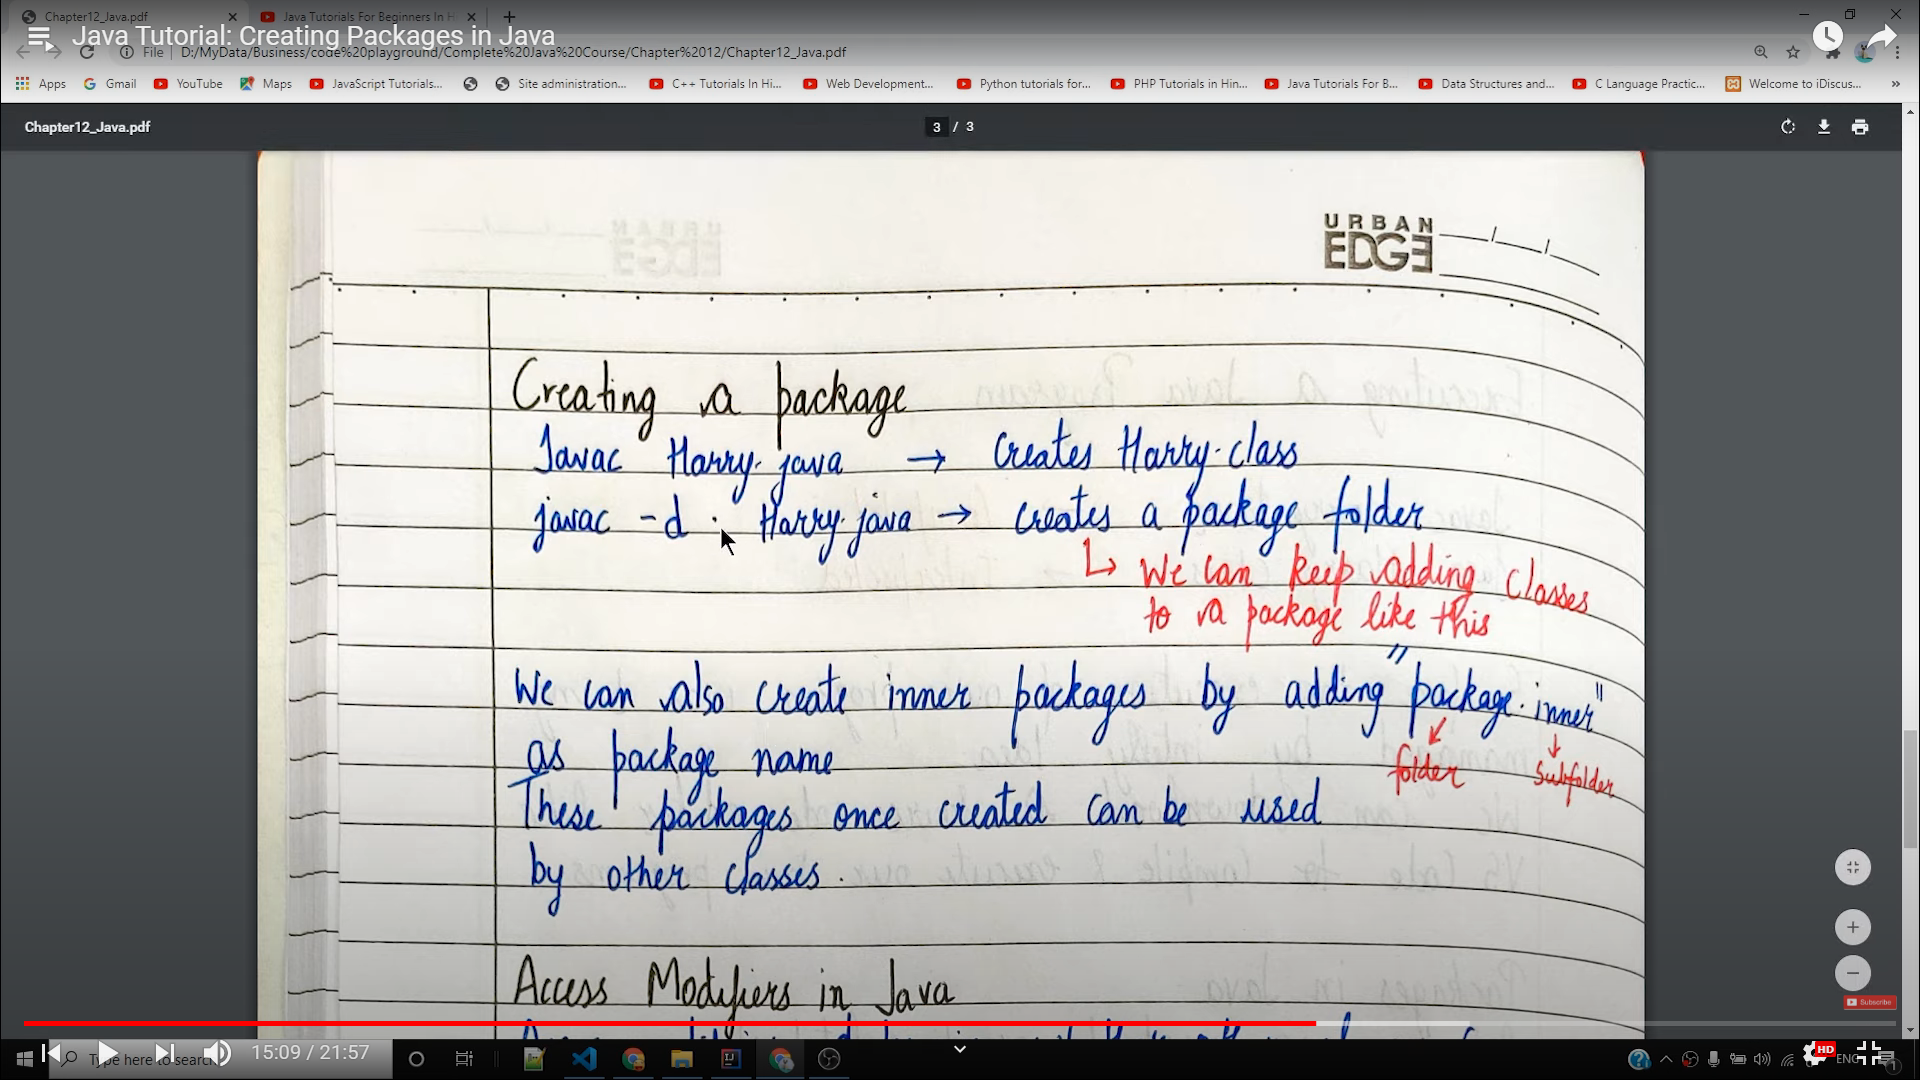 Chapter12_Java.pdf
Java Tutorials For Beginners In H
Java Tutorial: Creating Packages in Java
File D:/MyData/Business/code%20playground/Complete%20Java%20Course/Chapter%2012/Chapter12_Java.pdf
Apps Gmail YouTube Maps JavaScript Tutorials... Site administration... C++ Tutorials In Hi... Web Development... Python tutorials for... PHP Tutorials in Hin... Java Tutorials For B... Data Structures and... C Language Practic... Welcome to iDiscus... »
Chapter12_Java.pdf 3 / 3
URBAN
EDGE
Creating a package
Javac Harry.java → Creates Harry.class
javac -d . Harry.java → creates a package folder
↳ We can keep adding classes
to a package like this
We can also create inner packages by adding "package.inner"
as package name
folder subfolder
These packages once created can be used
by other classes.
Access Modifiers in Java
Subscribe
Type here to search
15:09 / 21:57
HD
ENG
1